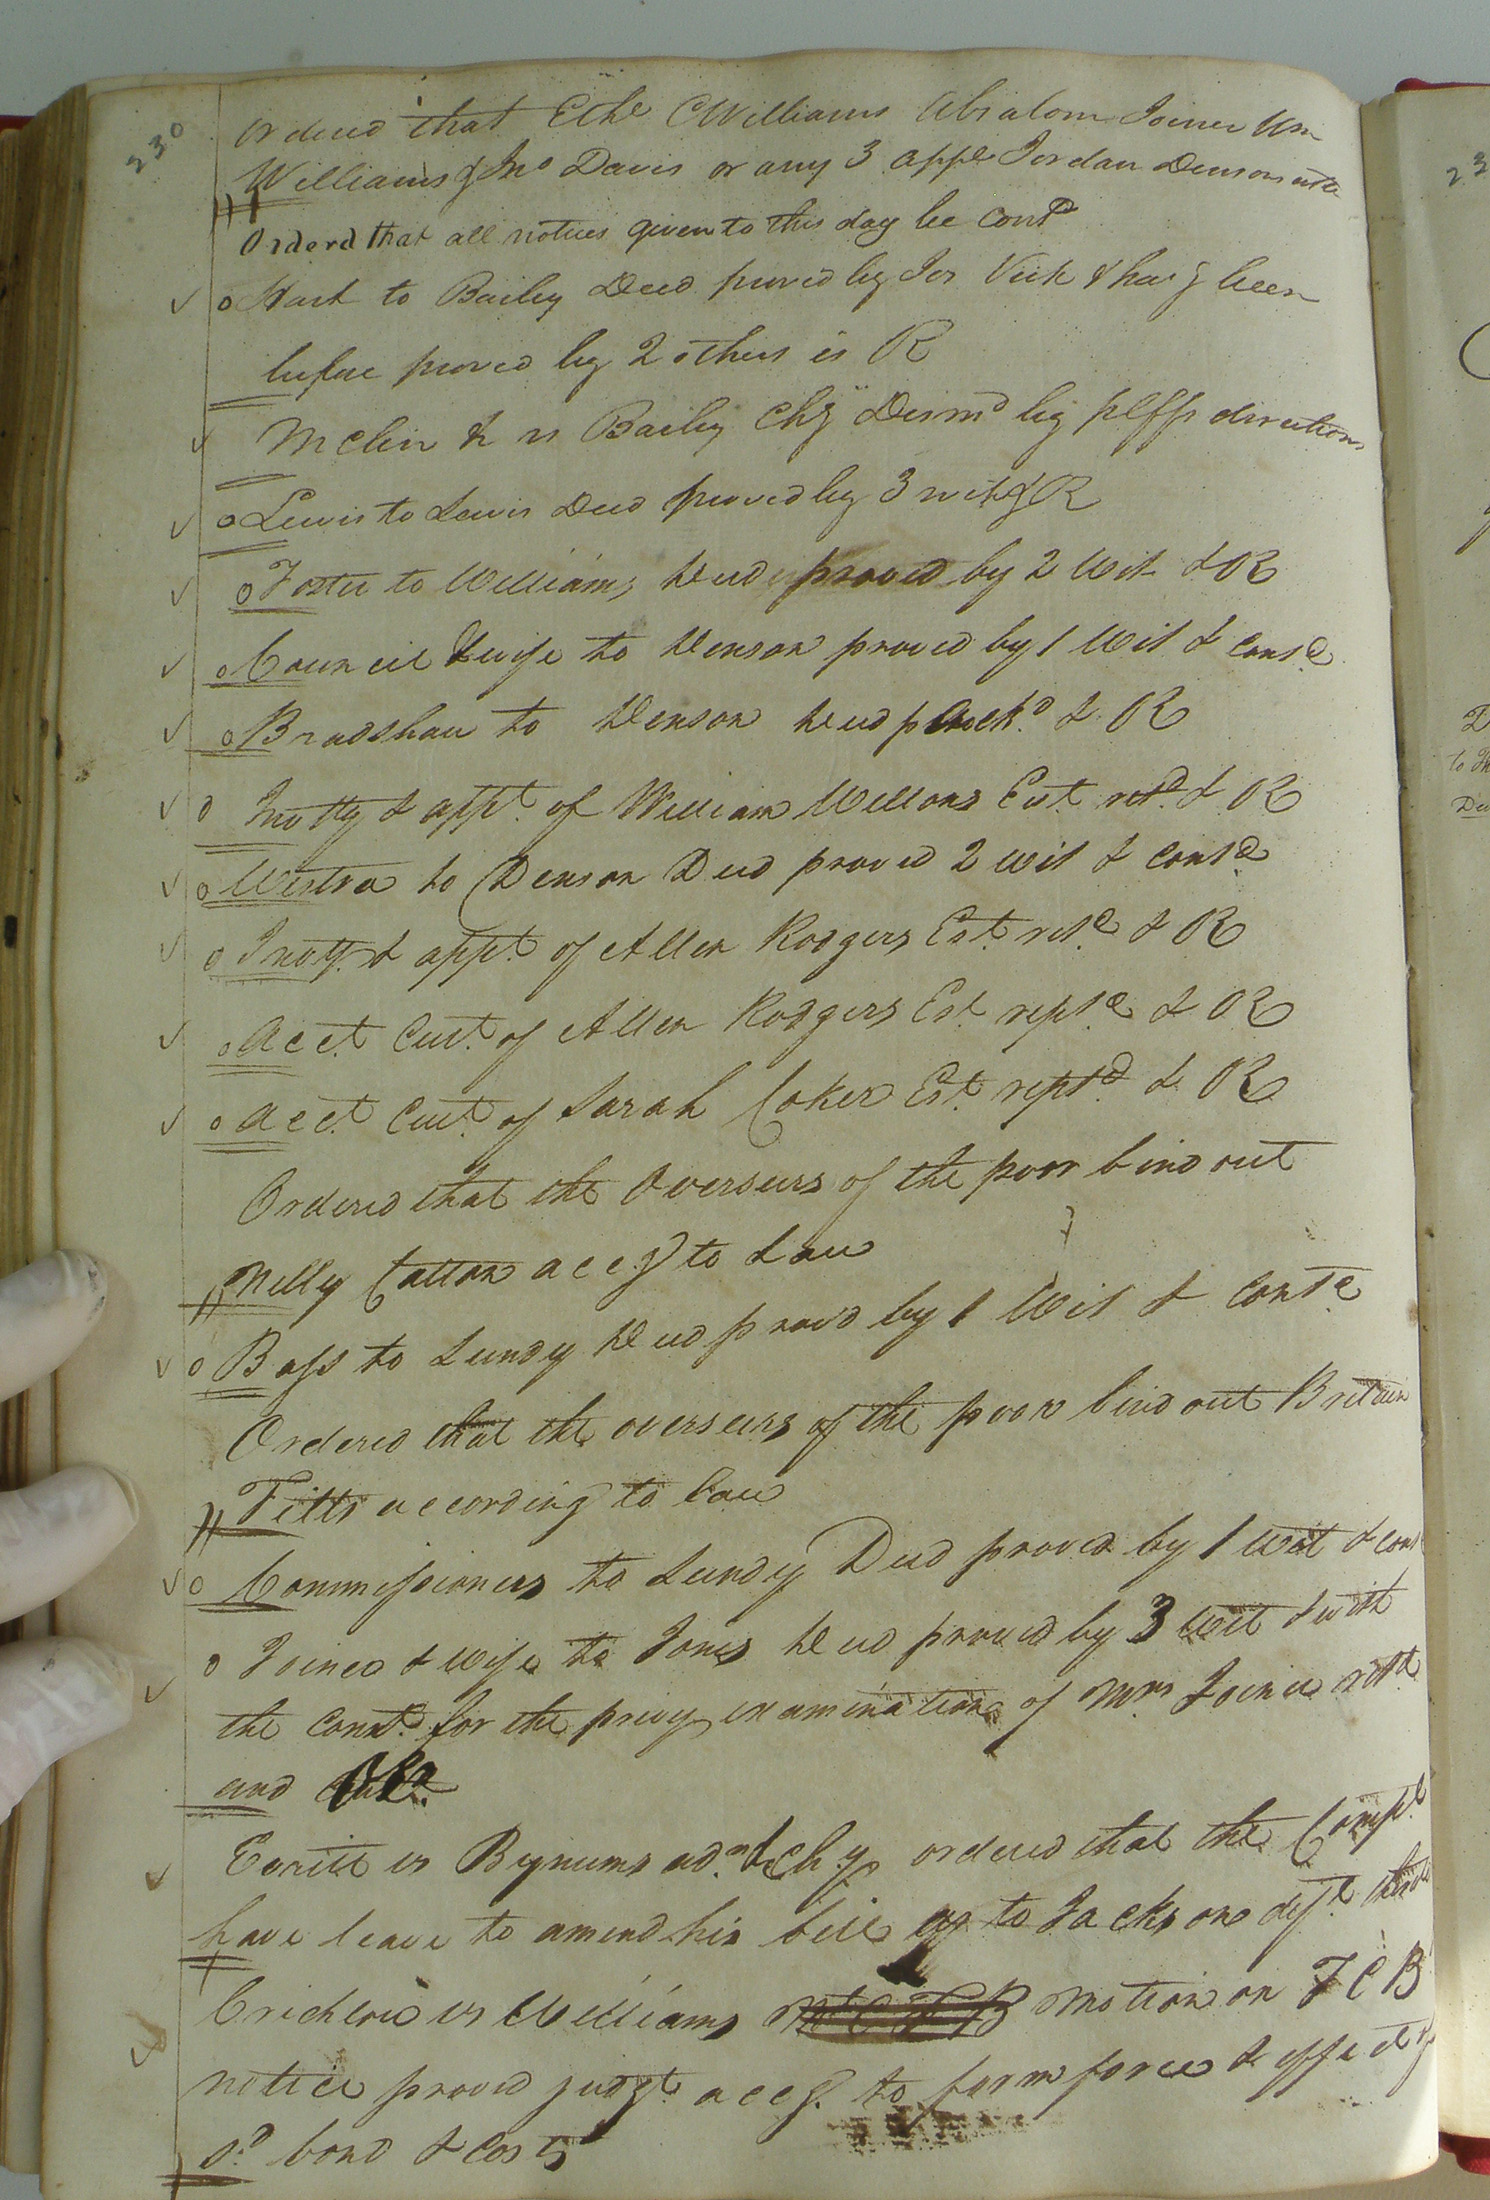 230
Ordered that Ethd CWilliams Absalom Joiner Wm
Williams & Jno Davis or any 3 appe Jordan Denson este
Orderd that all notices given to this day be Contd
o Hart to Bailey Deed proved by Jos Vick & havg been
before proved by 2 others is R
Mclin & vs Bailey Chy Dismd by plffs directions
o Lewis to Lewis Deed proved by 3 wits & R
o Foster to Williams Deed proved by 2 Wit & R
o Council & wife to Denson proved by 1 Wit & Contd
o Bradshaw to Denson Deed Ackd. & R
o Invtty & appt. of William Wellons Est. retd. & R
o Westra to Denson Deed proved 2 wit & Contd
o Invty. & appt. of Allen Rodgers Est. retd. & R
o Acct. Curt. of Allen Rodgers Est. reptd. & R
o Acct. Curt. of Sarah Coker Est. reptd. & R
Ordered that the Overseers of the poor bind out
Nelly Catton accg to Law
o Bass to Lundy Deed provd by 1 Wit & Contd.
Ordered that the overseers of the poor bind out Britain
Fitts according to Law
o Commissioners to Lundy Deed proved by 1 wit & Cont
o Joiner & wife to Jones Deed proved by 3 wit & with
the Comn. for the privy examination of Mrs Joiner retd.
and OR
Everitt vs Bynums adm. Chy. ordered that the Compt.
have leave to amend his bill as to Jackson deft.
Crichlow vs Williams motion on F C B
notice proved judgt. accg. to form force & effect of
sd. bond & Costs